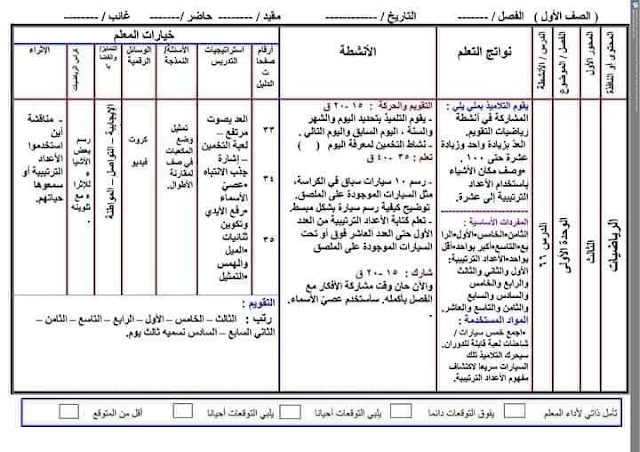 ( الصف الأول ) الفصل / ------- التاريخ / ------------ مقيد / -------- حاضر/ ------- غائب / --------
المحتوى أو النافذة
المحور الأول
الفصل / الموضوع
الدرس / الأنشطة
نواتج التعلم
الأنشطة
خيارات المعلم
أرقام صفحات الدليل
استراتيجيات التدريس
الأسئلة/ النمذجة
الوسائل الرقمية
كراس الرياضيات
الإثراء
الرياضيات
الثالث
الوحدة الأولى
الدرس ٦٦
يقوم التلاميذ بمني يلي :
المشاركة في أنشطة
رياضيات التقويم.
العدّ بزيادة واحد وزيادة
عشرة حتى ١٠٠ .
•وصف مكان الأشياء
باستخدام الأعداد
الترتيبية إلى عشرة.
المفردات الأساسية :
الثامن•الخامس•الأول•الرا
بع•التاسع•أكبر بواحد•أقل
بواحد•الأعداد الترتيبية:
الأول والثاني والثالث
والرابع والخامس
والسادس والسابع
والثامن والتاسع والعاشر.
المواد المستخدمة :
•اجمع خمس سيارات /
شاحنات لعبة قابلة للدوران.
سيحرك التلاميذ تلك
السيارات سريعا لاكتشاف
مفهوم الأعداد الترتيبية.
التقويم والحركة : ١٥ -٢٠ ق
- يقوم التلميذ بتحديد اليوم والشهر
والسنة ، اليوم السابق واليوم التالي .
- نشاط التخمين لمعرفة اليوم ( )
تعلم : ٣٥ -٤٠ ق
- رسم ١٠ سيارات سباق في الكراسة،
مثل السيارات الموجودة على الملصق.
توضيح كيفية رسم سيارة بشكل مبسط.
- تعلم كتابة الأعداد الترتيبية من العدد
الأول حتى العدد العاشر فوق أو تحت
السيارات الموجودة على الملصق
شارك : ١٥ -٢٠ ق
والآن حان وقت مشاركة الأفكار مع
الفصل بأكمله. سأستخدم عصيّ الأسماء.
٣٣
٣٤
٣٥
العد بصوت
مرتفع –
لعبة التخمين
– إشارة
جذب الانتباه
•عصيّ
الأسماء
•رفع الأيدي
وتكوين
ثنائيات
•الميل
والهمس
•التمثيل
تمثيل
وضع
المكعبات
في صف
لمقارنة
الأطوال.
كروت
فيديو
الإيجابية – التواصل – المواطنة
- مناقشة
أين
استخدموا
الأعداد
الترتيبية أو
سمعوها
حياتهم.
التقويم :
رتب : الثالث – الخامس – الأول – الرابع – التاسع – الثامن –
الثاني السابع – السادس نسميه ثالث يوم.
تأمل ذاتي لأداء المعلم يفوق التوقعات دائما يلبي التوقعات أحيانا يلبي التوقعات أحيانا أقل من المتوقع